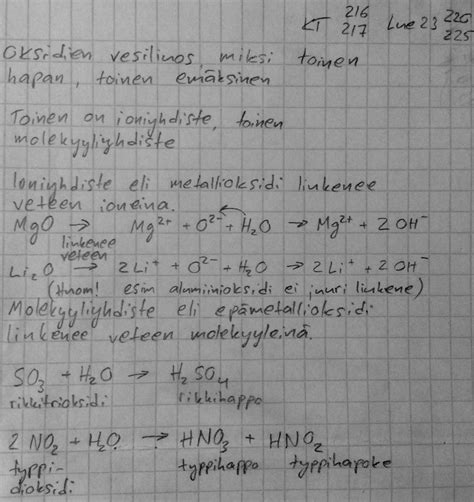 KT 216 217 Lue 23 220 225
Oksidien vesiliuos, miksi toinen
hapan, toinen emäksinen
Toinen on ioniyhdiste, toinen
molekyyliyhdiste
Ioniyhdiste eli metallioksidi liukenee
veteen ioneina.
MgO → Mg²⁺ + O²⁻ + H₂O → Mg²⁺ + 2OH⁻
liukenee
veteen
Li₂O → 2Li⁺ + O²⁻ + H₂O → 2Li⁺ + 2OH⁻
(Huom! esim alumiinioksidi ei juuri liukene)
Molekyyliyhdiste eli epämetallioksidi
liukenee veteen molekyyleinä.
SO₃ + H₂O → H₂SO₄
rikkitrioksidi rikkihappo
2 NO₂ + H₂O → HNO₃ + HNO₂
typpi- typpihappo typpihapoke
dioksidi